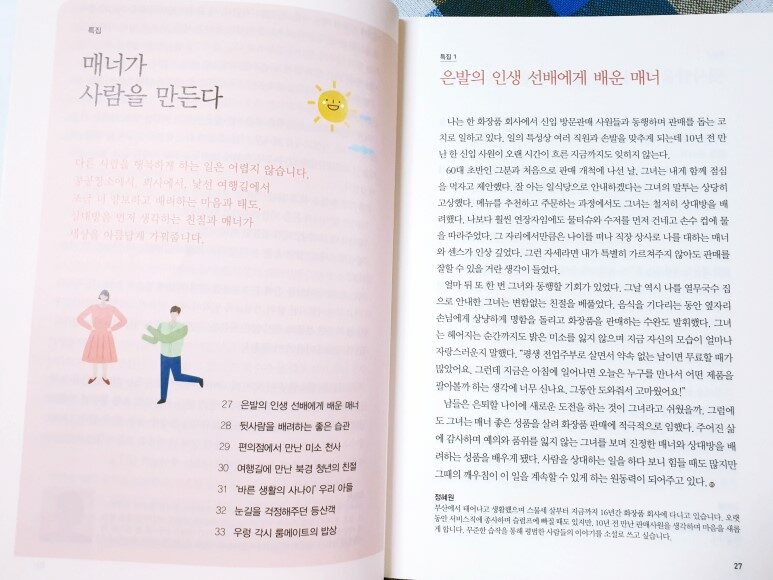 특집
매너가
사람을 만든다
다른 사람을 행복하게 하는 일은 어렵지 않습니다.
공공장소에서, 회사에서, 낯선 여행길에서
조금 더 양보하고 배려하는 마음과 태도,
상대방을 먼저 생각하는 친절과 매너가
세상을 아름답게 가꿔줍니다.
27 은발의 인생 선배에게 배운 매너
28 뒷사람을 배려하는 좋은 습관
29 편의점에서 만난 미소 천사
30 여행길에 만난 북경 청년의 친절
31 '바른 생활의 사나이' 우리 아들
32 눈길을 걱정해주던 등산객
33 우렁 각시 룸메이트의 밥상
특집 1
은발의 인생 선배에게 배운 매너
나는 한 화장품 회사에서 신입 방문판매 사원들과 동행하며 판매를 돕는 코
치로 일하고 있다. 일의 특성상 여러 직원과 손발을 맞추게 되는데 10년 전 만
난 한 신입 사원이 오랜 시간이 흐른 지금까지도 잊히지 않는다.
60대 초반인 그분과 처음으로 판매 개척에 나선 날, 그녀는 내게 함께 점심
을 먹자고 제안했다. 잘 아는 일식당으로 안내하겠다는 그녀의 말투는 상당히
고상했다. 메뉴를 추천하고 주문하는 과정에서도 그녀는 철저히 상대방을 배
려했다. 나보다 훨씬 연장자임에도 물티슈와 수저를 먼저 건네고 손수 컵에 물
을 따라주었다. 그 자리에서만큼은 나이를 떠나 직장 상사로 나를 대하는 매너
와 센스가 인상 깊었다. 그런 자세라면 내가 특별히 가르쳐주지 않아도 판매를
잘할 수 있을 거란 생각이 들었다.
얼마 뒤 또 한 번 그녀와 동행할 기회가 있었다. 그날 역시 나를 열무국수 집
으로 안내한 그녀는 변함없는 친절을 베풀었다. 음식을 기다리는 동안 옆자리
손님에게 상냥하게 명함을 돌리고 화장품을 판매하는 수완도 발휘했다. 그녀
는 헤어지는 순간까지도 밝은 미소를 잃지 않으며 지금 자신의 모습이 얼마나
자랑스러운지 말했다. "평생 전업주부로 살면서 약속 없는 날이면 무료할 때가
많았어요. 그런데 지금은 아침에 일어나면 오늘은 누구를 만나서 어떤 제품을
팔아볼까 하는 생각에 너무 신나요. 그동안 도와줘서 고마웠어요!"
남들은 은퇴할 나이에 새로운 도전을 하는 것이 그녀라고 쉬웠을까. 그럼에
도 그녀는 매너 좋은 성품을 살려 화장품 판매에 적극적으로 임했다. 주어진 삶
에 감사하며 예의와 품위를 잃지 않는 그녀를 보며 진정한 매너와 상대방을 배
려하는 성품을 배우게 됐다. 사람을 상대하는 일을 하다 보니 힘들 때도 많지만
그때의 깨우침이 이 일을 계속할 수 있게 하는 원동력이 되어주고 있다.
정혜원
부산에서 태어나고 생활했으며 스물세 살부터 지금까지 16년간 화장품 회사에 다니고 있습니다. 오랫
동안 서비스직에 종사하며 슬럼프에 빠질 때도 있지만, 10년 전 만난 판매사원을 생각하며 마음을 새롭
게 합니다. 꾸준한 습작을 통해 평범한 사람들의 이야기를 소설로 쓰고 싶습니다.
27